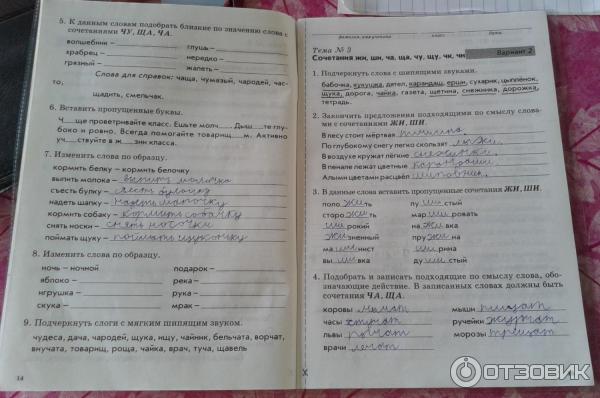 5. К данным словам подобрать близкие по значению слова с
сочетаниями ЧУ, ЩА, ЧА.
волшебник – глушь –
храбрец – нередко –
грязный – жалеть –
Слова для справок: чаща, чумазый, чародей, час-
то,
щадить, смельчак.
6. Вставить пропущенные буквы.
Ч....ще проветривайте класс. Ешьте молч.... Дыш....те глу-
боко и ровно. Всегда помогайте товарищ....м. Активно
уч....ствуйте в ж....зни класса.
7. Изменить слова по образцу.
кормить белку – кормить белочку
выпить молока – выпить молочка
съесть булку – съесть булочку
надеть шапку – надеть шапочку
кормить собаку – кормить собачку
снять носки – снять носочки
поймать щуку – поймать щукочку
8. Изменить слова по образцу.
ночь – ночной подарок –
яблоко – река –
игрушка – рука –
скука – мрак –
9. Подчеркнуть слоги с мягким шипящим звуком.
чудеса, дача, чародей, щука, ищу, чайник, бельчата, ворчат,
внучата, товарищ, роща, чайка, врач, туча, щавель
14
фамилия, имя ученика класс дата
Тема № 3
Сочетания жи, ши, ча, ща, чу, щу, чк, чн Вариант 2
1. Подчеркнуть слова с шипящими звуками.
бабочка, кукушка, дятел, карандаш, ерши, сухарик, цыплёнок,
щука, дорога, чайка, газета, щетина, снежинка, дорожка,
тетрадь.
2. Закончить предложения подходящими по смыслу слова-
ми с сочетаниями ЖИ, ШИ.
В лесу стоит мёртвая тишина.
По глубокому снегу легко скользят лыжи.
В воздухе кружат лёгкие снежинки.
В пенале лежат цветные карандаши.
Алыми цветами расцвёл шиповник.
3. В данные слова вставить пропущенные сочетания ЖИ, ШИ.
поло жи ть пу ши стый
сторо жи ть мар ши ровать
ши рокий на жи вка
жи зненный пру жи на
ма ши нист ши рина
вы ши вка ду ши стый
4. Подобрать и записать подходящие по смыслу слова, обо-
значающие действие. В записанных словах должны быть
сочетания ЧА, ЩА.
коровы мычат мыши пищат
часы стучат ручейки журчат
львы рычат морозы трещат
врачи лечат
ОТЗОВИК